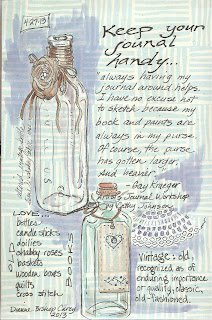 4-27-13
Keep your
journal
handy...
"always having my
journal around helps.
I have no excuse not
to sketch because my
book and paints are
always in my purse.
Of course, the purse
has gotten larger.
And heavier."
-Gay Kraeger
Artist's Journal Workshop
by Cathy Johnson
LOVE...
OLD
bottles
candle sticks
doilies
shabby roses
baskets
wooden boxes
quilts
cross stitch
BOOKS
Vintage: old,
recognized as of
enduring importance
or quality, classic,
old-fashioned.
Dianne Bishop Carey
2013